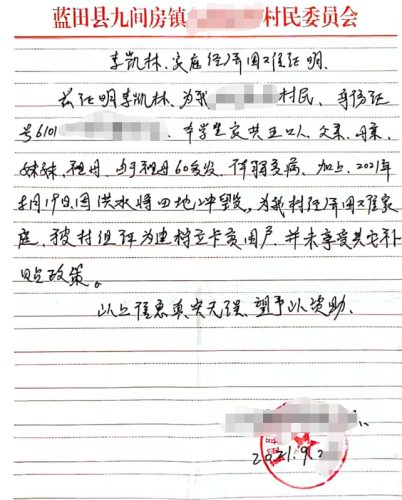 蓝田县九间房镇 村民委员会
李凯林家庭经济困难证明
兹证明李凯林,为我 村民,身份证
号6101 ,本学生家共五口人,父亲、母亲、
妹妹、祖母,由于祖母60多岁,体弱多病,加上,2021年
月19日因洪水将田地冲毁,为我村经济困难家
庭,被村组评为建档立卡贫困户,并未享受其它补
贴政策。
以上信息真实无误,望予以资助。
2021.9.2